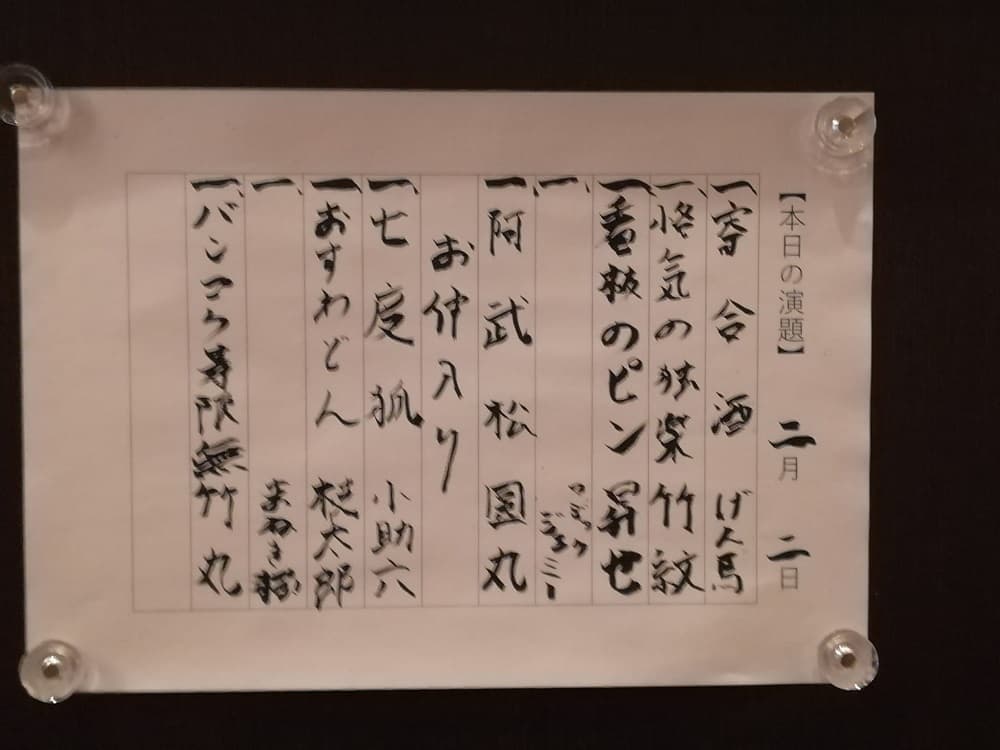 【本日の演題】 二月 二日
一、寄合酒 げん馬
一、悋気の独楽 竹紋
一、看板のピン 昇也
一、 マジックジェミー
一、阿武松 圓丸
お仲入り
一、七度狐 小助六
一、おすわどん 枝太郎
一、 まねき猫
一、バンコク寿限無 竹丸